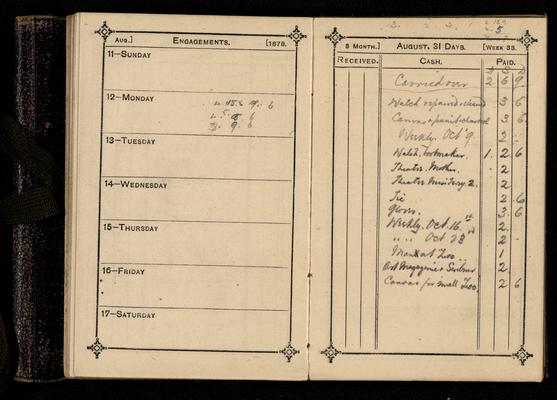 Aug.] Engagements. [1878.
11—Sunday
12—Monday
9. 6
6
3. 9. 6
13—Tuesday
14—Wednesday
15—Thursday
16—Friday
17—Saturday
5
8 Month.] August, 31 Days. [Week 33.
Received. Cash. Paid.
Carried over 2 6 9
Watch repaired 3 6
Canvas & paint 3 6
Weekly. Oct 9 2
1. 2 6
Theatre. Mother. 2
Theatre 2. 2
Tie 2 6
Gloves. 3. 6
Weekly. Oct. 16th 2.
" " Oct 23rd 2
at Zoo 1
Art Magazine & 2
Canvas for small Zoo. 2 6